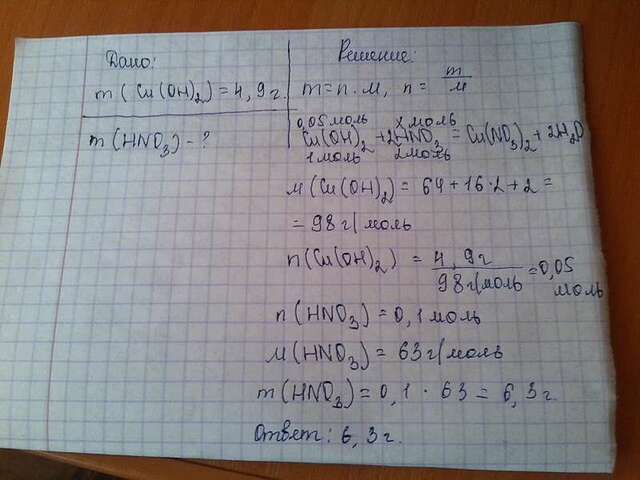 Дано:
m (Cu(OH)₂) = 4,9г.
m (HNO₃) - ?
Решение:
m = n · M, n = m/M
0,05 моль x моль
Cu(OH)₂ + 2HNO₃ = Cu(NO₃)₂ + 2H₂O
1 моль 2 моль
M (Cu(OH)₂) = 64 + 16·2 + 2 =
= 98 г/моль
n (Cu(OH)₂) = 4,9г / 98 г/моль = 0,05
моль
n (HNO₃) = 0,1 моль
M (HNO₃) = 63 г/моль
m (HNO₃) = 0,1 · 63 = 6,3 г.
Ответ: 6,3 г.